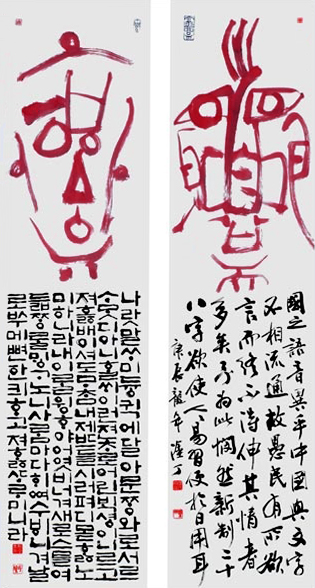 國之語音異乎中國與文字
不相流通故愚民有所欲
言而終不得伸其情者
多矣予為此憫然新制二十
八字欲使人易習便於日用耳
庚辰龍年
나랏말ᄊᆞ미듕귁에달아문ᄍᆞᆼ와로서르
ᄉᆞᄆᆞᆺ디아니ᄒᆞᆯᄊᆡ이런젼ᄎᆞ로어린ᄇᆡᆨ셩이니르고
져호ᇙ배이셔도ᄆᆞᄎᆞᆷ내제ᄠᅳ들시러펴디몯ᄒᆞᇙ노
미하니라내이ᄅᆞᆯ윙ᄒᆞ야어엿비너겨새로스믈여
듧ᄍᆞᆼᄅᆞᆯᄆᆡᇰᄀᆞ노니사ᄅᆞᆷ마다ᄒᆡᅇᅧ수ᄫᅵ니겨날
로ᄡᅮ메뼌한킈ᄒᆞ고져ᄒᆞᇙᄯᆞᄅᆞ미니라